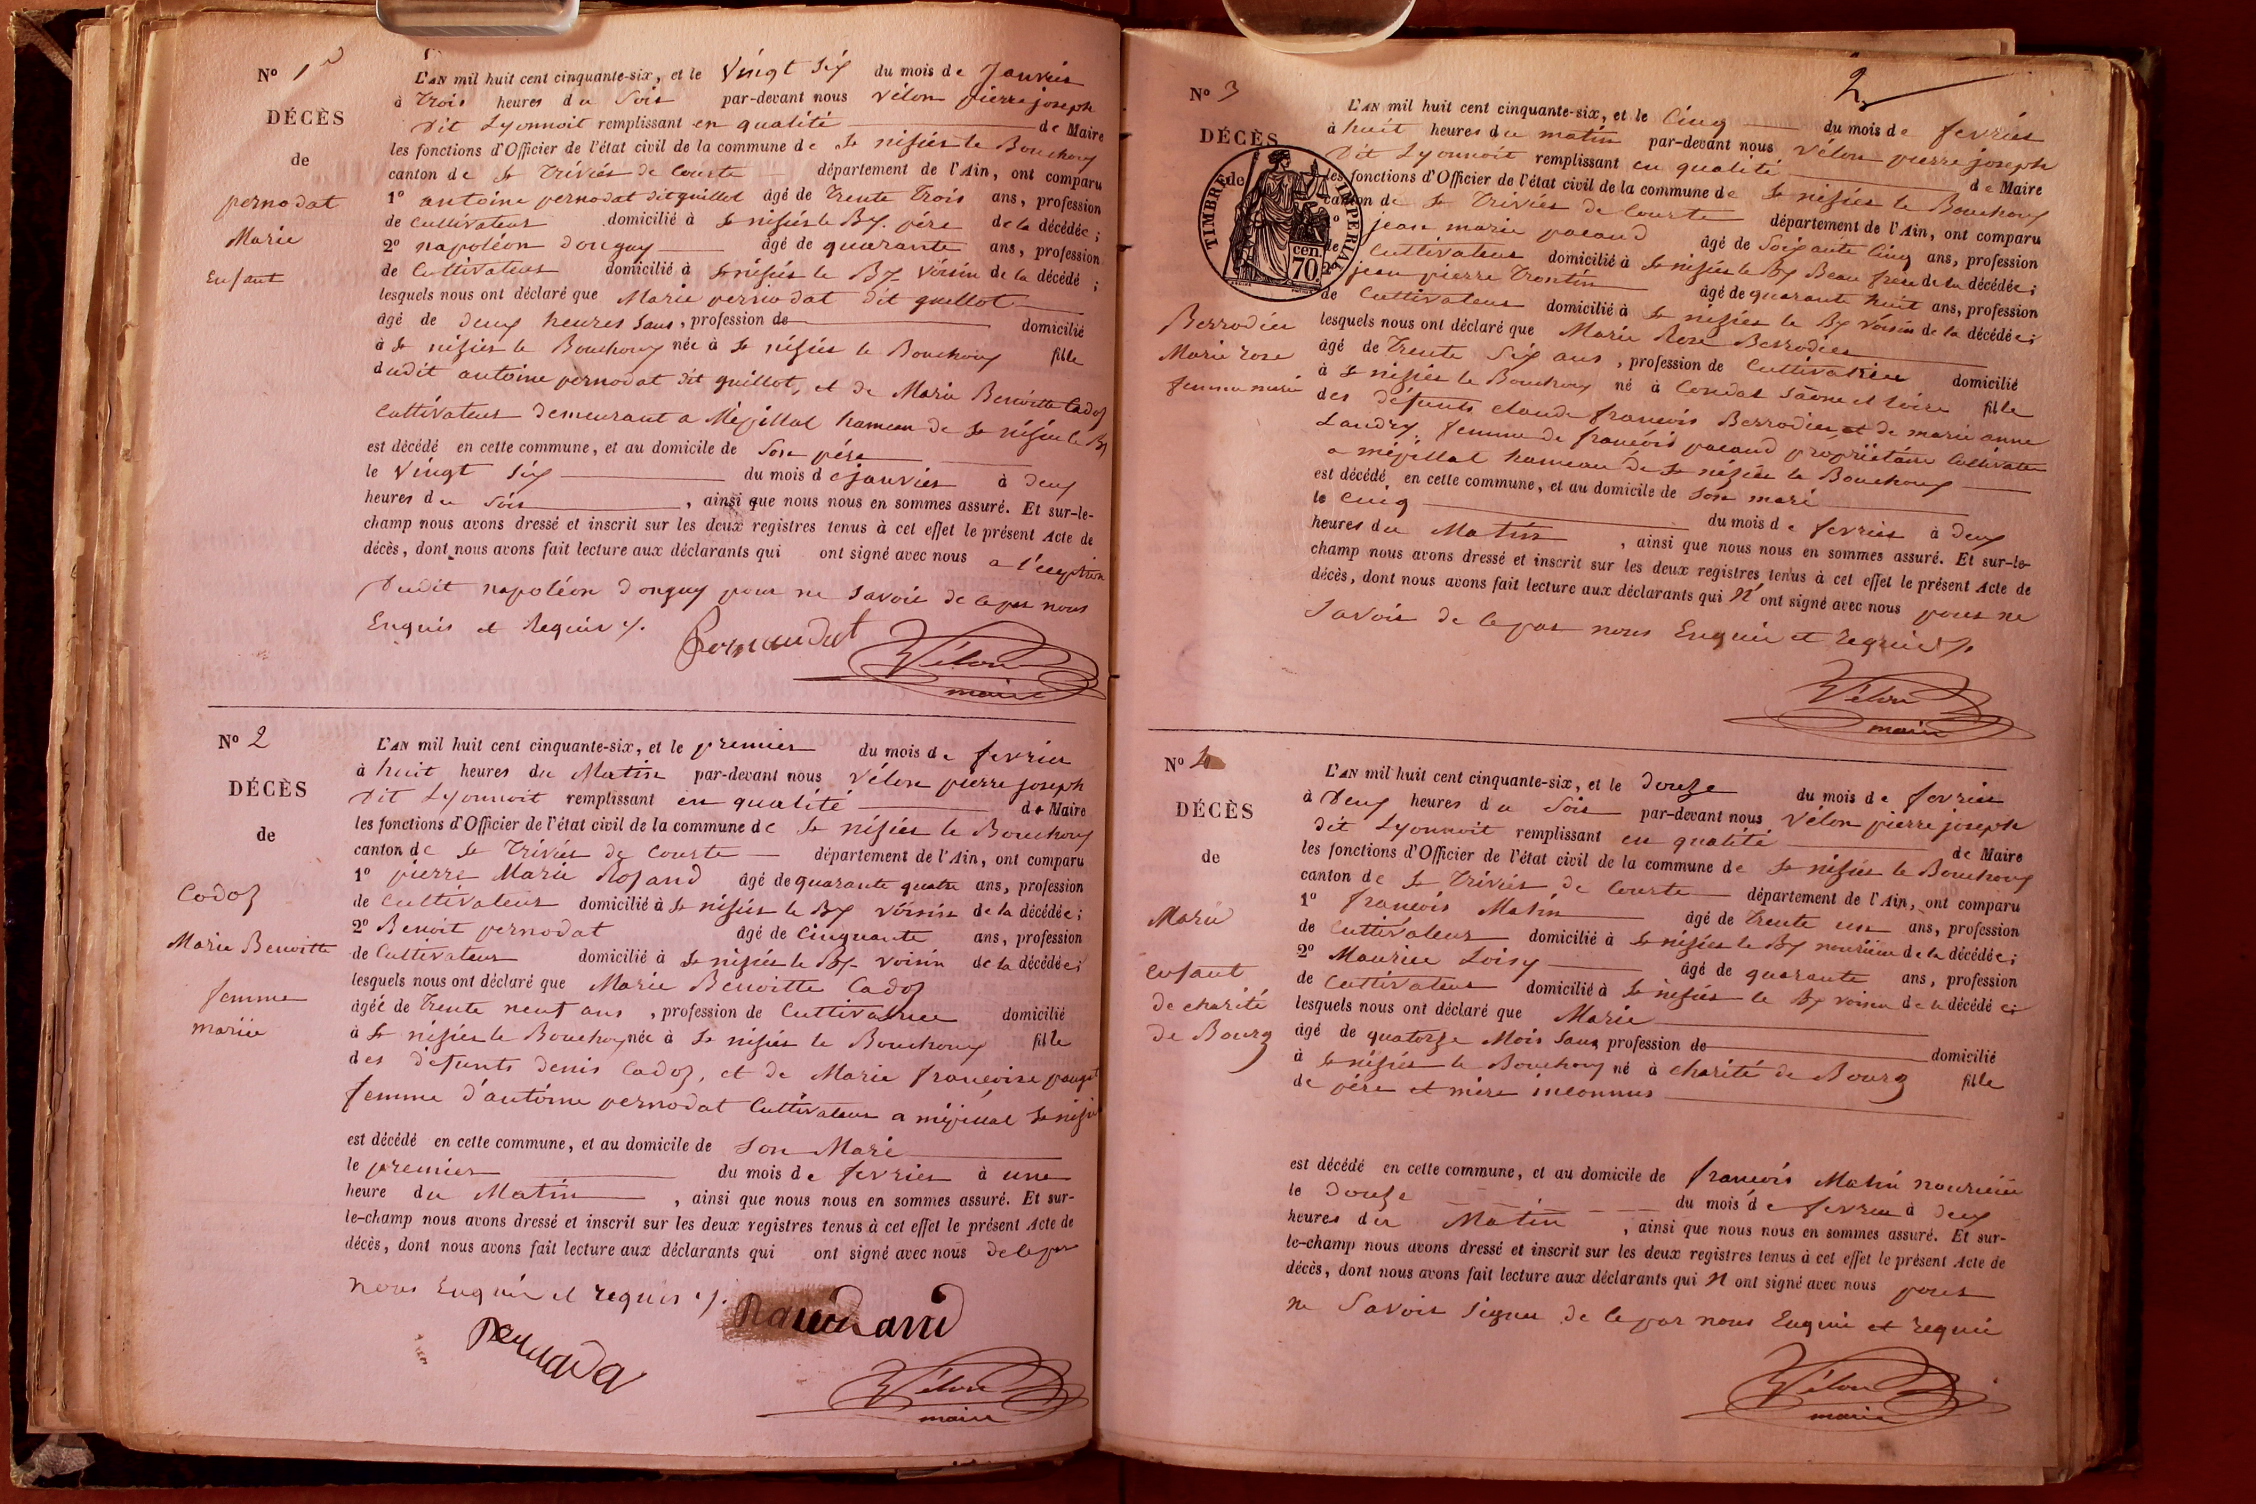 No 1er
DÉCÈS
de
pernodat
Marie
Enfant
L'AN mil huit cent cinquante-six, et le Vingt Six du mois de Janvier
à Trois heures du Soir par-devant nous Vélon pierre joseph
Dit Lyonnoit remplissant en qualité de Maire
les fonctions d'Officier de l'état civil de la commune de St nisiés le Bouchoux
canton de St Triviés de Courte département de l'Ain, ont comparu
1o antoine pernodat dit guillot âgé de Trente Trois ans, profession
de Cultivateur domicilié à St nisiés le Bx. pére de la décédée;
2o napoléon Donguy âgé de quarante ans, profession
de Cultivateur domicilié à St nisiés le Bx Voisin de la décédé;
lesquels nous ont déclaré que Marie pernodat dit guillot
âgé de deux heures Sans, profession de domicilié
à St nisiés le Bouchoux née à St nisiés le Bouchoux fille
dudit antoine pernodat dit guillot, et de Marie Benoitte Cadoz
Cultivateur demeurant a Mépillat hameau de St nisiés le Bx
est décédé en cette commune, et au domicile de Son pére
le Vingt Six du mois de janvier à deux
heures du Soir, ainsi que nous nous en sommes assuré. Et sur-le-
champ nous avons dressé et inscrit sur les deux registres tenus à cet effet le présent Acte de
décès, dont nous avons fait lecture aux déclarants qui ont signé avec nous a l'éxception
Dudit napoléon Donguy pour ne Savoir de ce par nous
Enquis et Requis ./.
Pernaudat
Vélon
maire
No 2
DÉCÈS
de
Cadoz
Marie Benoitte
femme
mariée
L'AN mil huit cent cinquante-six, et le premier du mois de fevrier
à huit heures du Matin par-devant nous Vélon pierre joseph
Dit Lyonnoit remplissant en qualité de Maire
les fonctions d'Officier de l'état civil de la commune de St nisiés le Bouchoux
canton de St Triviés de Courte département de l'Ain, ont comparu
1o pierre Marie Rojand âgé de quarante quatre ans, profession
de Cultivateur domicilié à St nisiés le Bx Voisin de la décédée;
2o Benoit pernodat âgé de Cinquante ans, profession
de Cultivateur domicilié à St nisiés le Bx Voisin de la décédée;
lesquels nous ont déclaré que Marie Benoitte Cadoz
âgée de Trente neuf ans, profession de Cultivatrice domicilié
à St nisiés le Bouchoux née à St nisiés le Bouchoux fille
des défunts denis Cadoz, et de Marie francoise pauget
femme d'antoine pernodat Cultivateur a mépillat St nisiés
est décédé en cette commune, et au domicile de Son Mari
le premier du mois de fevrier à une
heure du Matin, ainsi que nous nous en sommes assuré. Et sur-
le-champ nous avons dressé et inscrit sur les deux registres tenus à cet effet le présent Acte de
décès, dont nous avons fait lecture aux déclarants qui ont signé avec nous de ce par
nous Enquis et requis ./.
Vélon
maire
2
No 3
DÉCÈS
de
Berrodier
Marie rose
femme mariée
TIMBRE IMPERIAL
70 cen.
L'AN mil huit cent cinquante-six, et le Cinq du mois de fevrier
à huit heures du matin par-devant nous Vélon pierre joseph
Dit Lyonnoit remplissant en qualité de Maire
les fonctions d'Officier de l'état civil de la commune de St nisiés le Bouchoux
canton de St Triviés de Courte département de l'Ain, ont comparu
1o jean marie pacaud âgé de Soixante Cinq ans, profession
de Cultivateur domicilié à St nisiés le Bx Beau frere de la décédée;
2o jean pierre Trontin âgé de quarante huit ans, profession
de Cultivateur domicilié à St nisiés le Bx Voisin de la décédée;
lesquels nous ont déclaré que Marie Rose Berrodier
âgé de Trente Six ans, profession de Cultivatrice domicilié
à St nisiés le Bouchoux né à Condal Saône et loire fille
des défunts claude francois Berrodier, et de marie anne
Landry, femme de francois pacaud propriétaire Cultivateur
a mépillat hameau de St nisiés le Bouchoux
est décédé en cette commune, et au domicile de Son mari
le Cinq du mois de fevrier à deux
heures du Matin, ainsi que nous nous en sommes assuré. Et sur-le-
champ nous avons dressé et inscrit sur les deux registres tenus à cet effet le présent Acte de
décès, dont nous avons fait lecture aux déclarants qui N'ont signé avec nous pour ne
Savoir de ce par nous Enquis et requis ./.
Vélon
maire
No 4
DÉCÈS
de
Marie
enfant
de charité
de Bourg
L'AN mil huit cent cinquante-six, et le Douze du mois de fevrier
à Deux heures du Soir par-devant nous Vélon pierre joseph
dit Lyonnoit remplissant en qualité de Maire
les fonctions d'Officier de l'état civil de la commune de St nisiés le Bouchoux
canton de St Triviés de Courte département de l'Ain, ont comparu
1o francois Matin âgé de Trente un ans, profession
de Cultivateur domicilié à St nisiés le Bx nouricier de la décédée;
2o Maurice Loisy âgé de quarante ans, profession
de Cultivateur domicilié à St nisiés le Bx voisin de la décédée;
lesquels nous ont déclaré que Marie
âgé de quatorze Mois Sans profession de domicilié
à St nisiés le Bouchoux né à charité de Bourg fille
de pére et mére inconnus
est décédé en cette commune, et au domicile de francois Matin nouricier
le Douze du mois de fevrier à deux
heures du Matin, ainsi que nous nous en sommes assuré. Et sur-
le-champ nous avons dressé et inscrit sur les deux registres tenus à cet effet le présent Acte de
décès, dont nous avons fait lecture aux déclarants qui N ont signé avec nous pour
ne Savoir Signer de ce par nous Enquis et requis
Vélon
maire